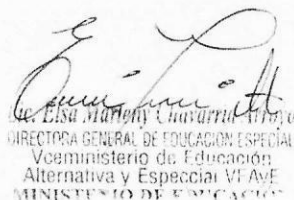 Lic. Elsa Marleny Chavarria
DIRECTORA GENERAL DE EDUCACIÓN ESPECIAL
Viceministerio de Educación
Alternativa y Especial VEAyE
MINISTERIO DE EDUCACIÓN